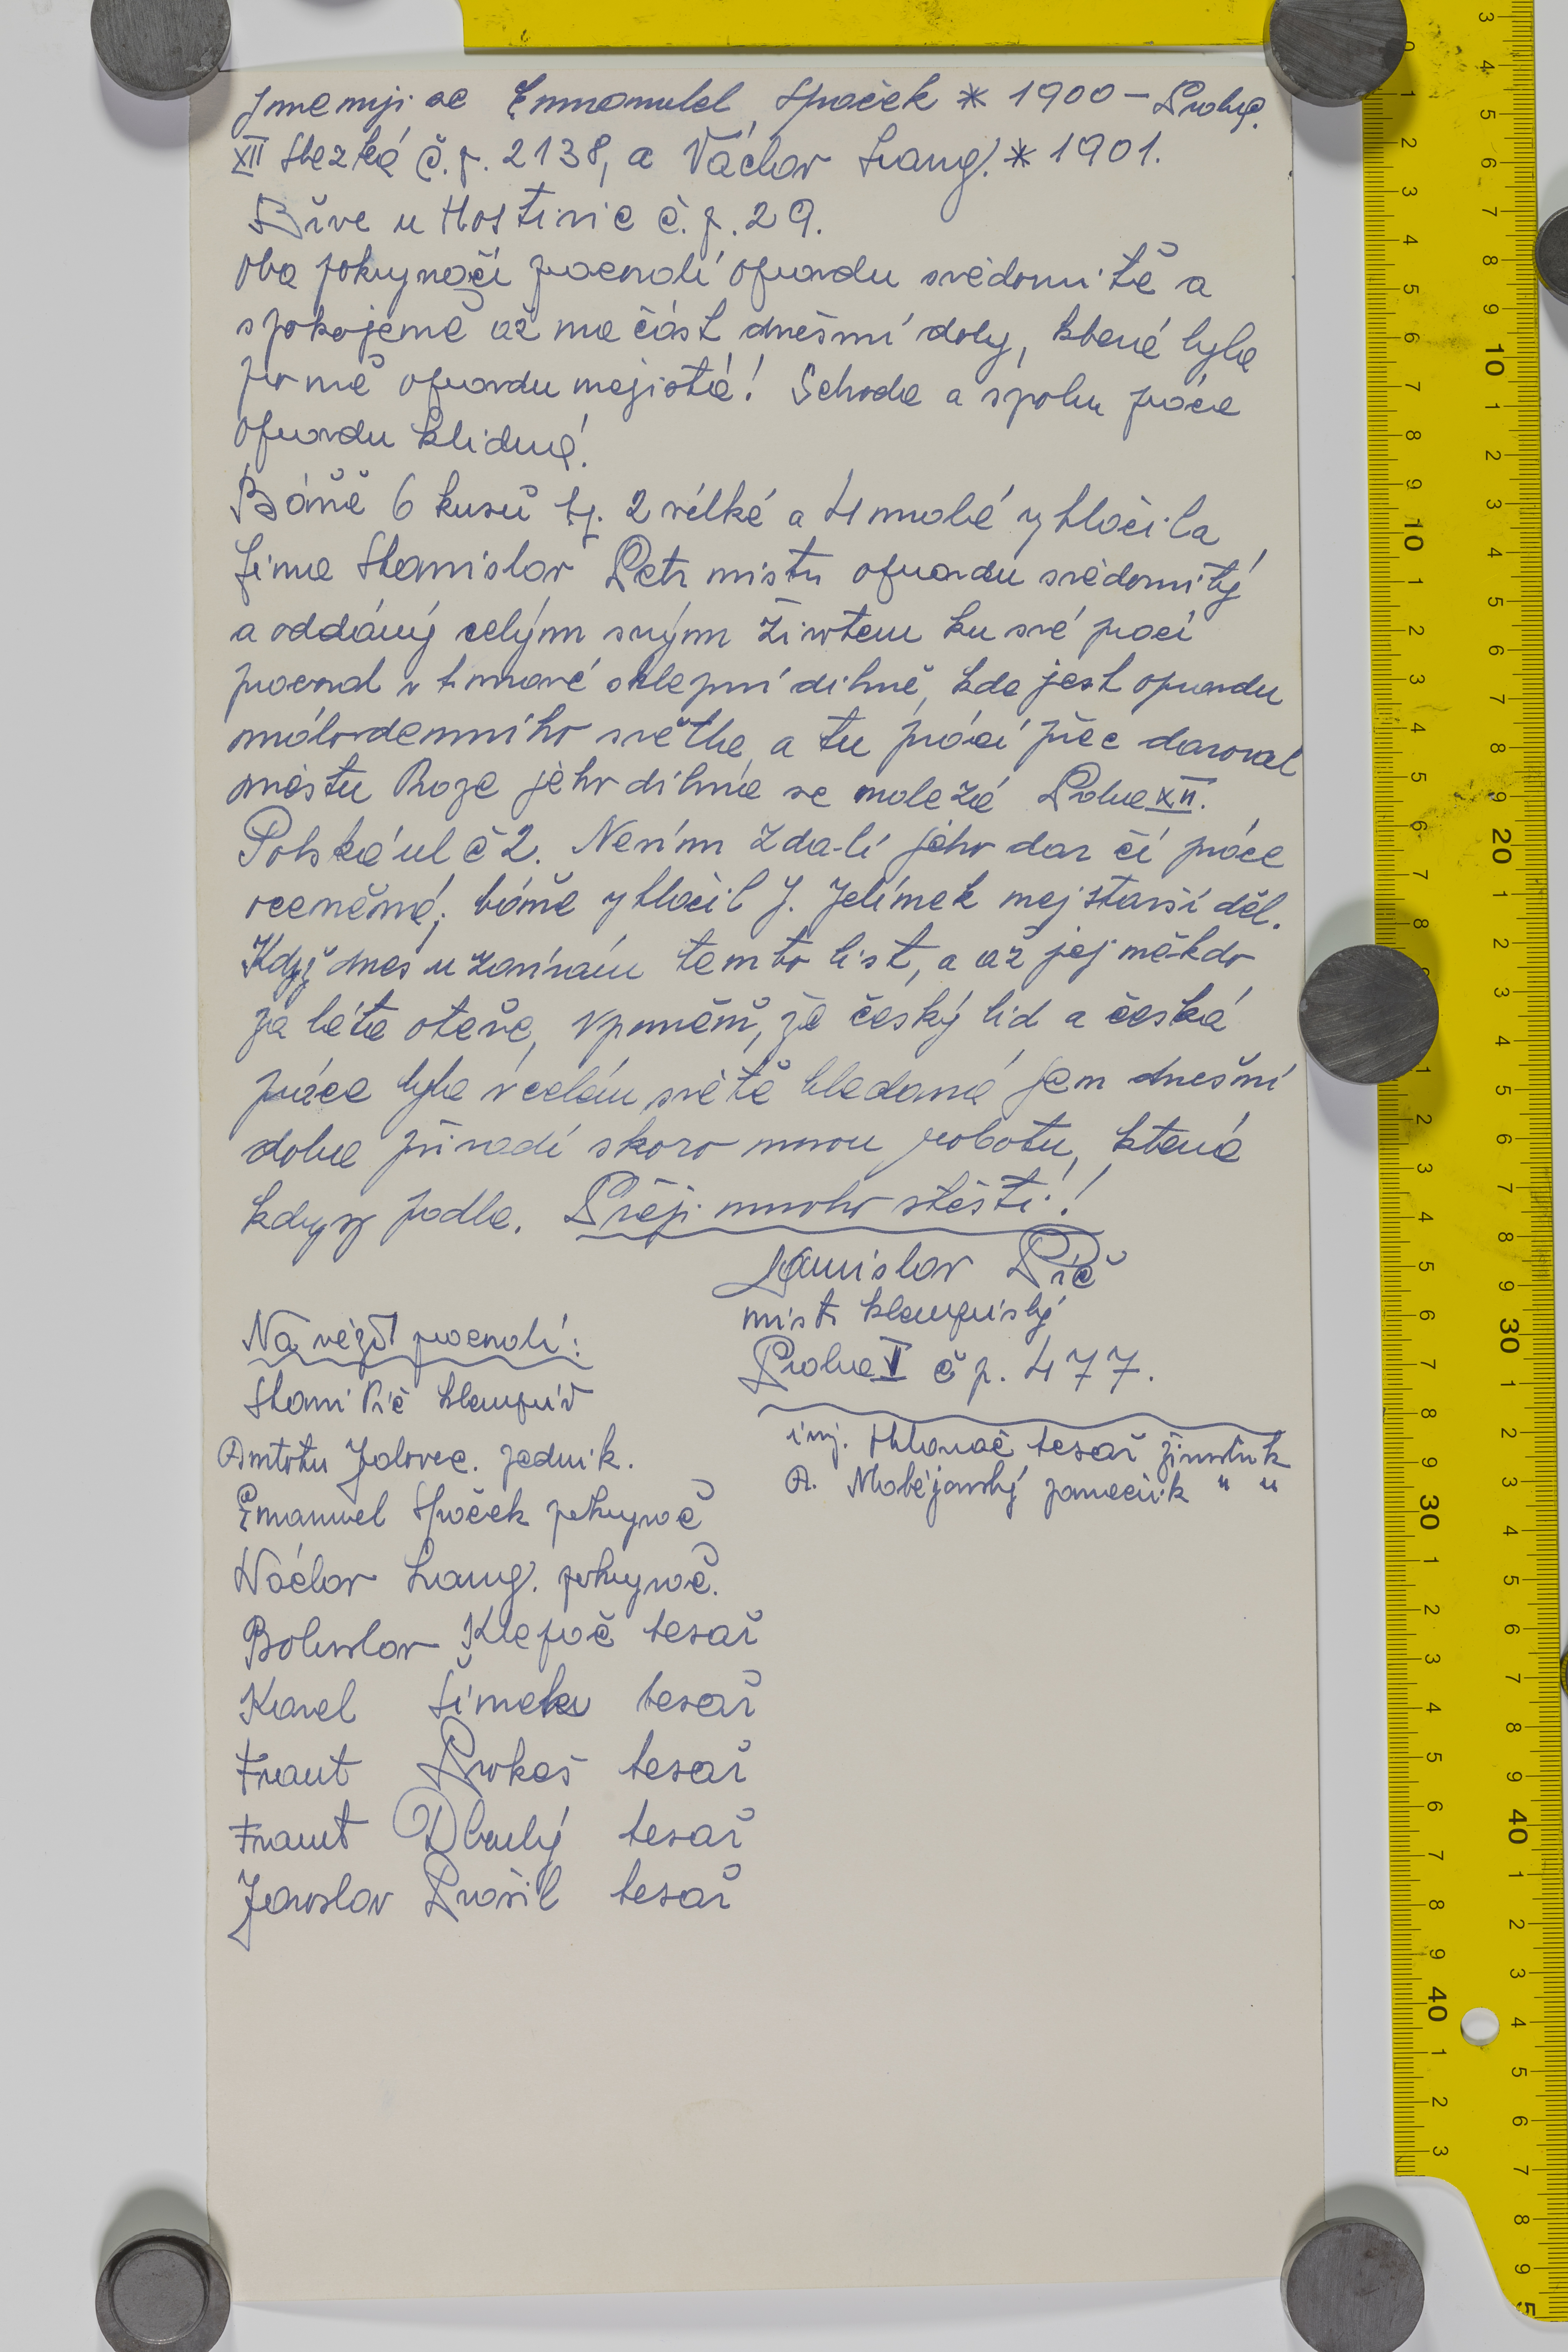 Jmenují se Emmanuel Špaček * 1900 – Praha
XII Slezská č.p. 2138, a Václav Lang. * 1901.
Břve u Hostivic č.p. 29.
Oba pokrývači pracovali opravdu svědomitě a
spokojeně až na část dnešní doby, která byla
pro ně opravdu nejistá! Schoda a spolu práce
opravdu klidná!
Báně 6 kusů tj. 2 velké a 4 malé vytlačila
firma Stanislav Petr mistr opravdu svědomitý
a oddaný celým svým životem ku své práci
pracoval v tmavé sklepní dílně, kde jest opravdu
málo denního světla, a tu práci přec daroval
městu Praze jeho dílna se nalézá Praha XII.
Polská ul č 2. Nevím zda-li jeho dar či práce
oceněná; báně vytlačil J. Jelínek nejstarší děl.
Když dnes uzavírám tento list, a až jej někdo
za léta otevře, vpoměň, že český lid a česká
práce byla v celém světě hledaná jen dnešní
doba přivádí skoro novou robotu, která
kdysy padla. Přeji mnoho štěstí!!
Stanislav Pič
mistr klempířský
Praha V č p. 477.
Na věži pracovali:
Stani Pič klempíř
Antotn Jalovec. zedník.
Emanuel Špaček pokrývač
Václav Lang. pokrývač.
Bohuslav Klepač tesař
Karel Šimek tesař
Frant Prokeš tesař
Frant Dlouhý tesař
Jaroslav Prášil tesař
inj. Hlaváč tesař živnostník
A. Matějovský zámečník " "